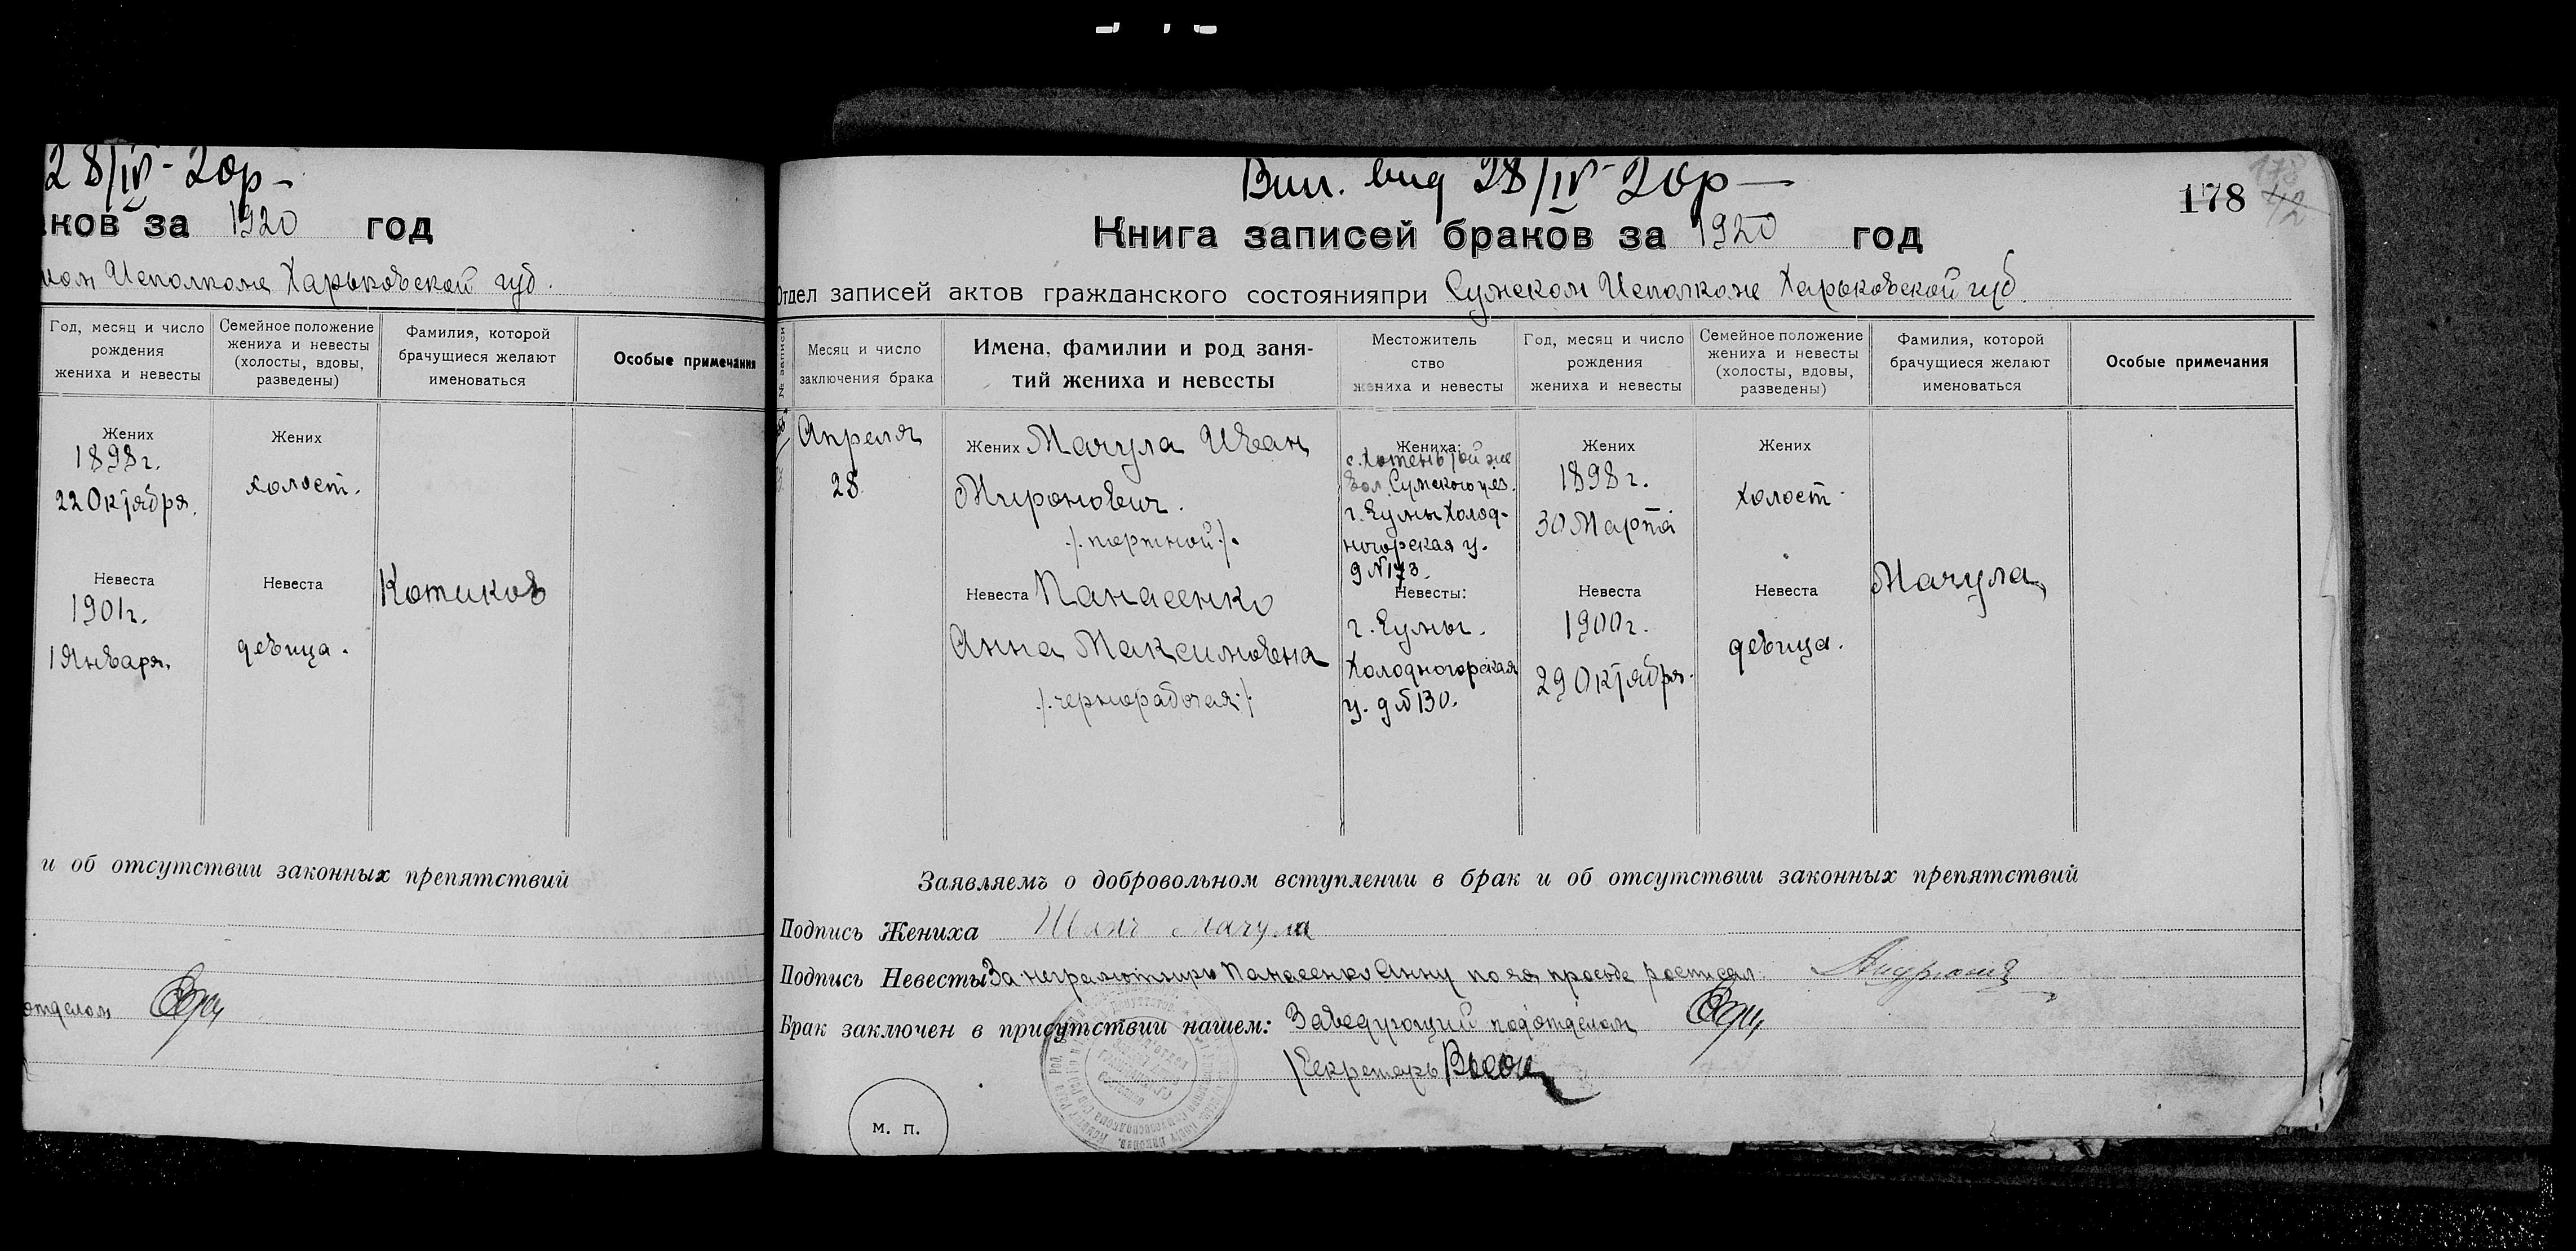 28/IV-20р-
ков за 1920 год
ком Исполкоме Харьковской губ.
Год, месяц и число рождения жениха и невесты
Семейное положение жениха и невесты (холосты, вдовы, разведены)
Фамилия, которой брачущиеся желают именоваться
Особые примечания
Жених
1898г.
22 Октября.
Жених
холост.
Невеста
1901г.
1 Января.
Невеста
девица.
Котиков
и об отсутствии законных препятствий
отделом
Вип. вид 28/IV-20р-
178
178
42
Книга записей браков за 1920 год
Отдел записей актов гражданского состоянияпри Сумском Исполкоме Харьковской губ.
№ записи
Месяц и число
заключения брака
Имена, фамилии и род заня-
тий жениха и невесты
Местожитель
ство
жениха и невесты
Год, месяц и число
рождения
жениха и невесты
Семейное положение
жениха и невесты
(холосты, вдовы,
разведены)
Фамилия, которой
брачущиеся желают
именоваться
Особые примечания
Апреля
28.
Жених Мачула Иван
Миронович.
/.портной./.
Невеста Панасенко
Анна Максимовна
/.чернорабочая./
Жениха:
с. Хотень той же
вол. Сумского уез.
г. Сумы Холод-
ногорская у.
д№173.
Невесты:
г. Сумы.
Холодногорская
у. д№130.
Жених
1898г.
30 Марта
Невеста
1900г.
29 Октября.
Жених
холост.
Невеста
девица.
Мачула
Заявляемъ о добровольном вступлении в брак и об отсутствии законных препятствий
Подпись Жениха Мачула
Подпись Невесты За неграмотную Панасенко Анну по ея просьбе росписал
Брак заключен в присутствии нашем: Заведующий подотделом
Секретарь
м. п.